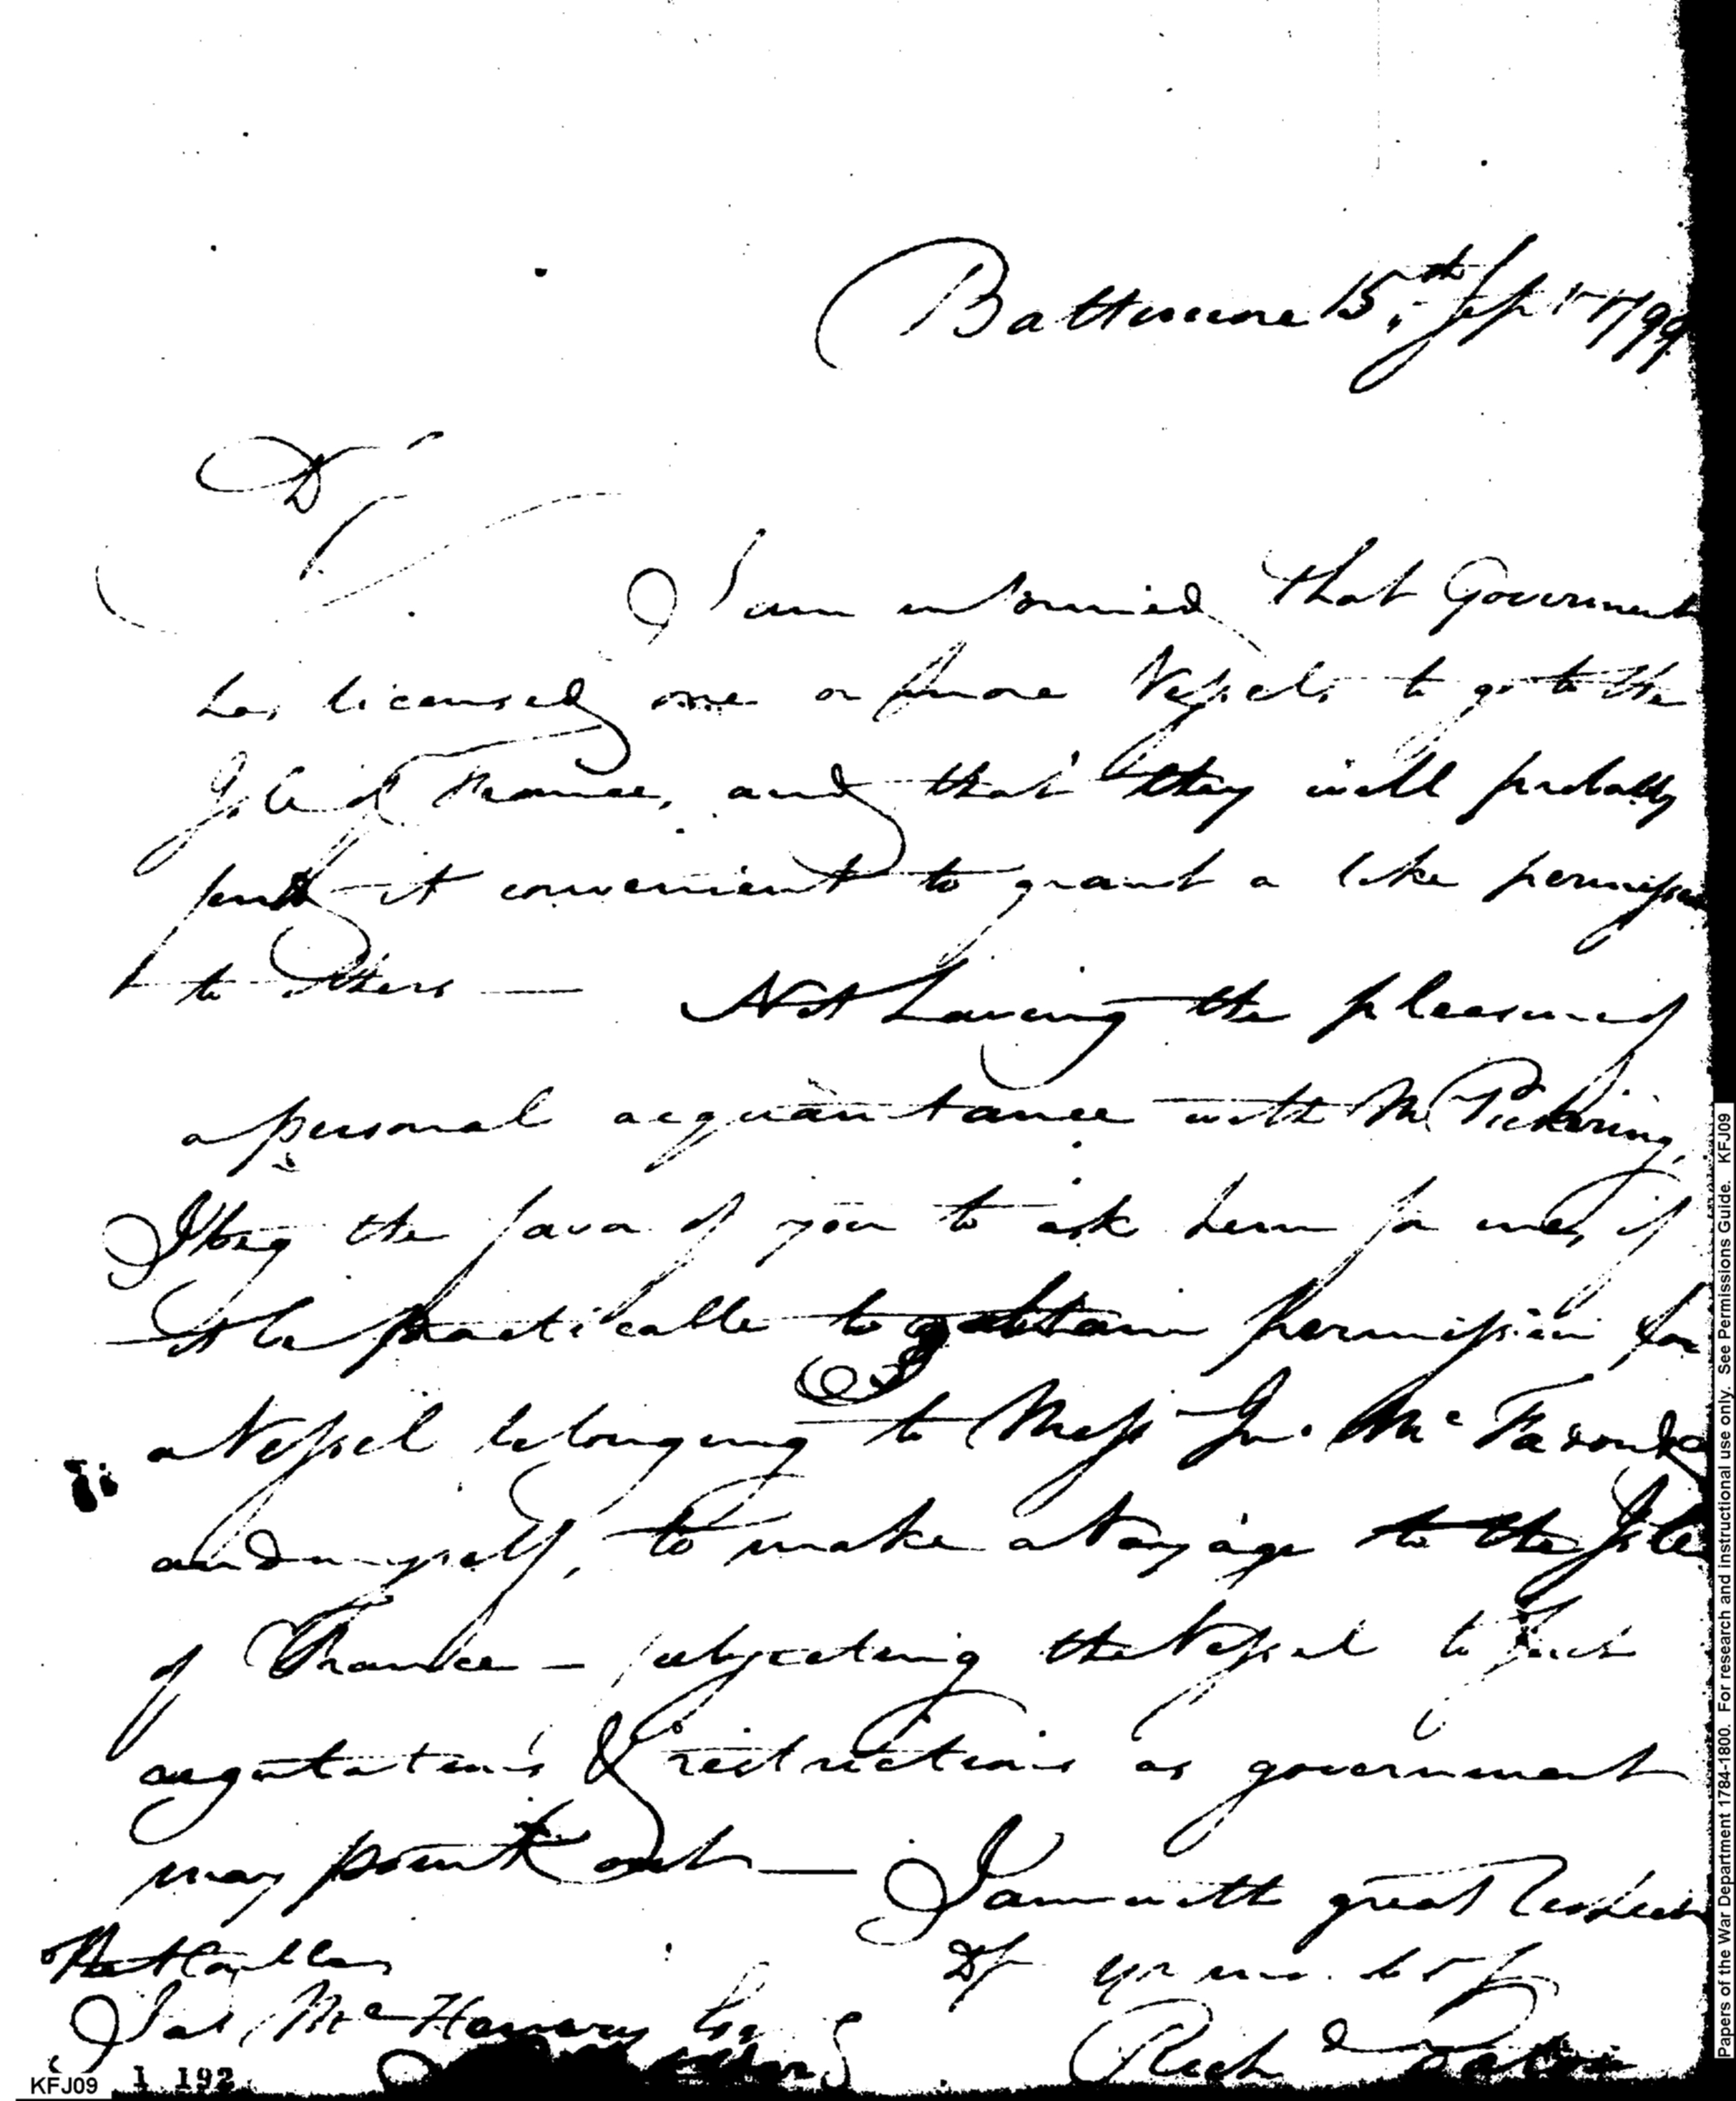 Baltimore 15.th Sept 1799
Dr Sir
I am informed that Government
has licensed one or more Vessels to go to the
Isle of France, and that they will probably
find it convenient to grant a like permission
to others — Not having the pleasure of
a personal acquaintance with Mr Pickering,
I beg the favor of you to ask him for me, if
it be practicable to obtain permission for
a Vessel belonging to Messr Jn. McFadon & Co
and myself, to make a Voyage to the Isle
of France — subjecting the Vessel to such
regulations & restrictions as government
may point out — I am with great Respect
Dr Sir yr mo. ob St
The Honble
Jas McHenry Esq
Rich
KFJ09
1 192
Papers of the War Department 1784-1800. For research and instructional use only. See Permissions Guide. KFJ09